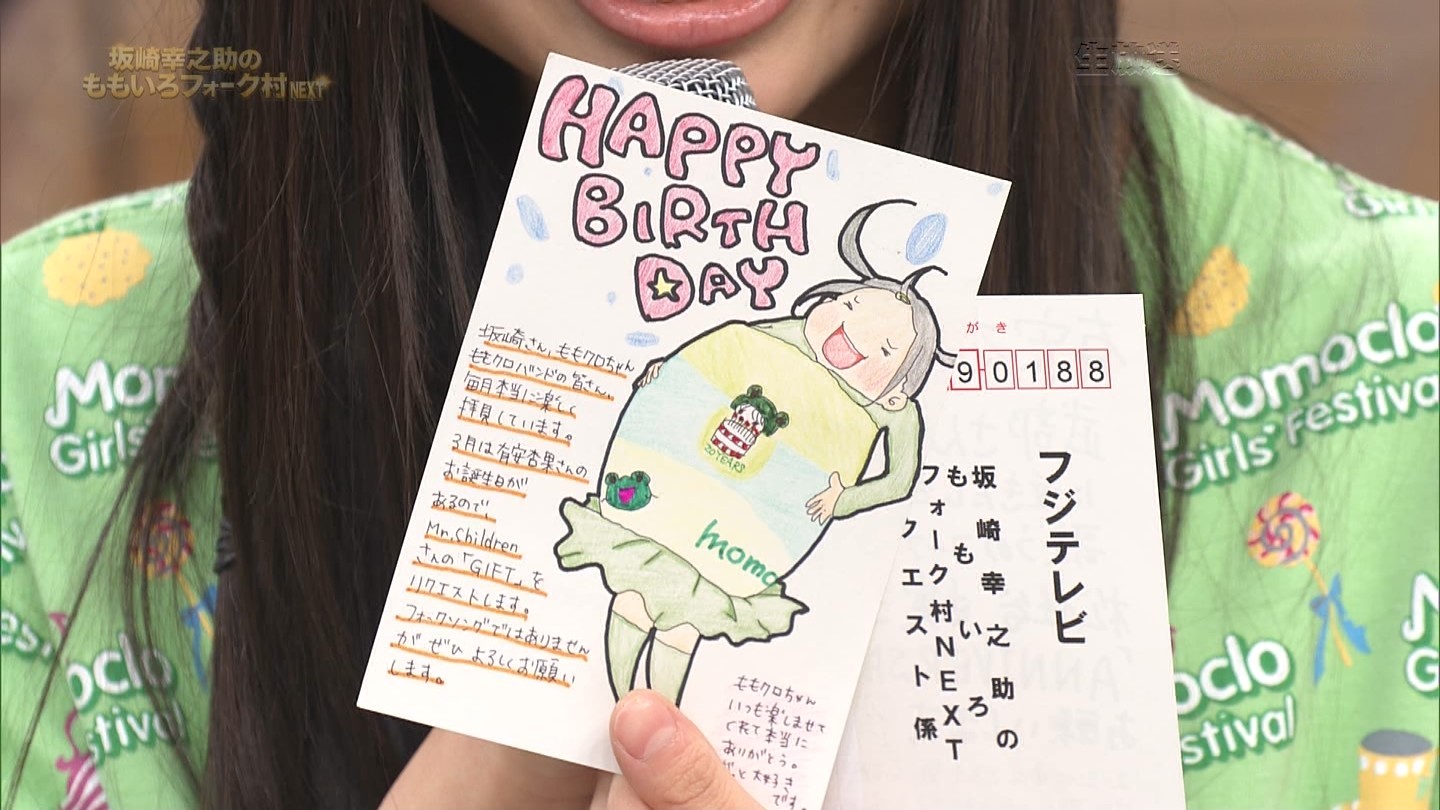 坂崎幸之助の
ももいろフォーク村NEXT
生放送
HAPPY
BIRTH
DAY
坂崎さん、ももクロちゃん
ももクロバンドの皆さん、
毎月本当に楽しく
拝見しています。
3月は有安杏果さんの
お誕生日が
あるので、
Mr.Children
さんの「GIFT」を
リクエストします。
フォークソングではありません
が ぜひ よろしくお願い
します。
20YEARS
momo
ももクロちゃん
いつも楽しませて
くれて本当に
ありがとう。
大好き
です。
がき
90188
フジテレビ
坂崎幸之助の
ももいろ
フォーク村NEXT
リクエスト係
Momoclo
Girls' Festival
Momoclo
Girls' Festival
oclo
stival
oclo
stival